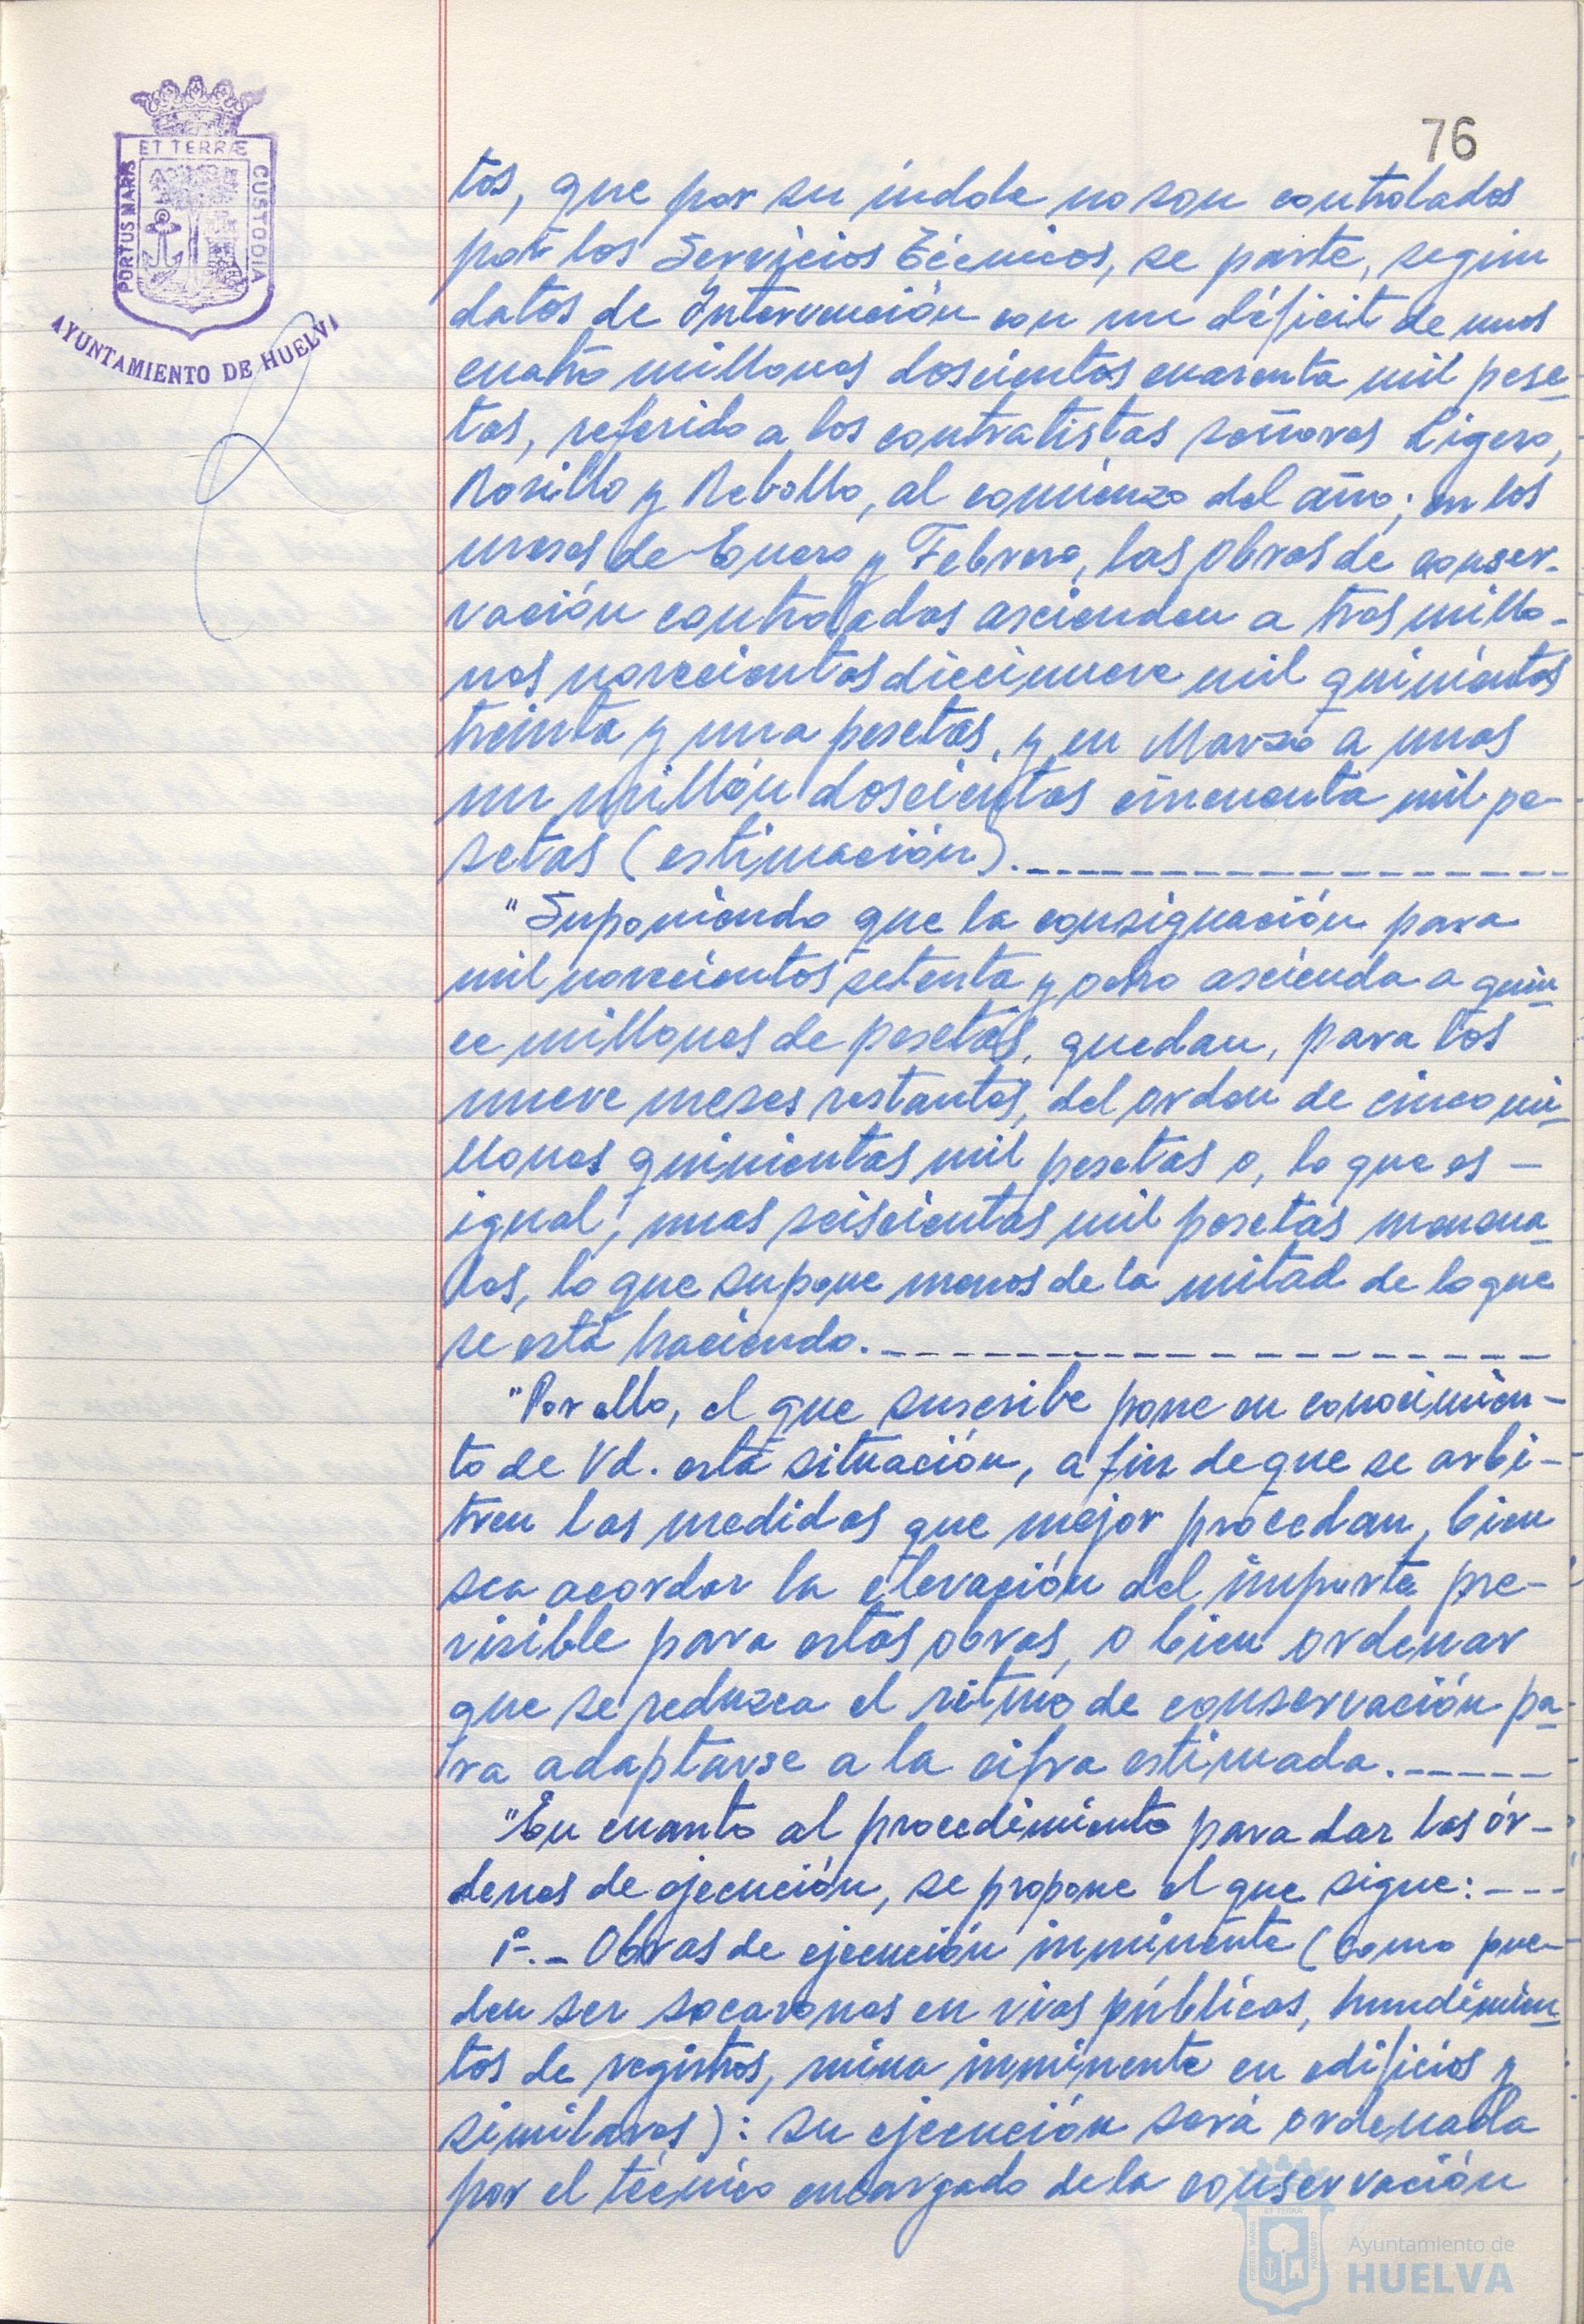 76
ET TERRÆ
PORTUS MARIS
CUSTODIA
AYUNTAMIENTO DE HUELVA
tos, que por su índole no son controlados
por los Servicios Técnicos, se parte, según
datos de Intervención con un déficit de unos
cuatro millones doscientas cuarenta mil pese-
tas, referido a los contratistas señores Ligero,
Rosillo y Rebollo, al comienzo del año; en los
meses de Enero y Febrero, las obras de conser-
vación controladas ascienden a tres millo-
nes novecientas diecinueve mil quinientas
treinta y una pesetas, y en Marzo a unas
un millón doscientas cincuenta mil pe-
setas (estimación).
"Suponiendo que la consignación para
mil novecientos setenta y ocho ascienda a quin-
ce millones de pesetas, quedan, para los
nueve meses restantes, del orden de cinco mi-
llones quinientas mil pesetas o, lo que es -
igual, unas seiscientas mil pesetas mensua-
les, lo que supone menos de la mitad de lo que
se está haciendo.
"Por ello, el que suscribe pone en conocimien-
to de Vd. esta situación, a fin de que se arbi-
tren las medidas que mejor procedan, bien
sea acordar la elevación del importe pre-
visible para estas obras, o bien ordenar
que se reduzca el ritmo de conservación pa-
ra adaptarse a la cifra estimada.
"En cuanto al procedimiento para dar las ór-
denes de ejecución, se propone el que sigue:
1º.- Obras de ejecución inminente (como pue-
den ser socavones en vías públicas, hundimien-
tos de registros, ruina inminente en edificios y
similares): su ejecución será ordenada
por el técnico encargado de la conservación
Ayuntamiento de
HUELVA